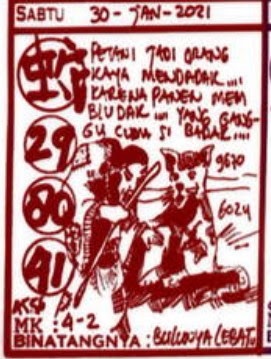 SABTU 30-JAN-2021
蛇
PETANI JADI ORANG
KAYA MENDADAK....
KARENA PANEN MEM
BLUDAK... YANG GANG-
GU CUMA SI BADAK....
29
80
41
9670
6024
AS
MK : 4-2
BINATANGNYA : BULUNYA LEBAT